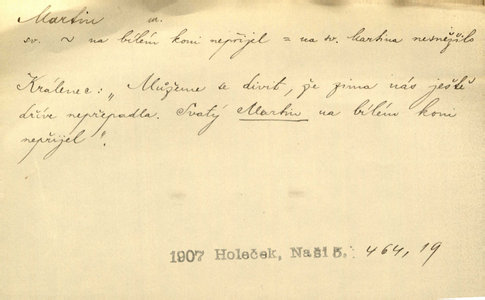 Martin m.
sv. ~ na bílém koni nepřijel = na sv. Martina nesněžilo
Králenec: „Můžeme se divit, že zima nás ještě
dříve nepřepadla. Svatý Martin na bílém koni
nepřijel".
1907 Holeček, Naši 5. 464, 19